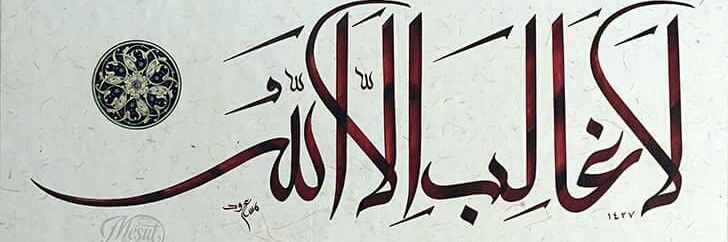 لَا غَالِبَ إِلَّا اللّٰهُ
Mesut